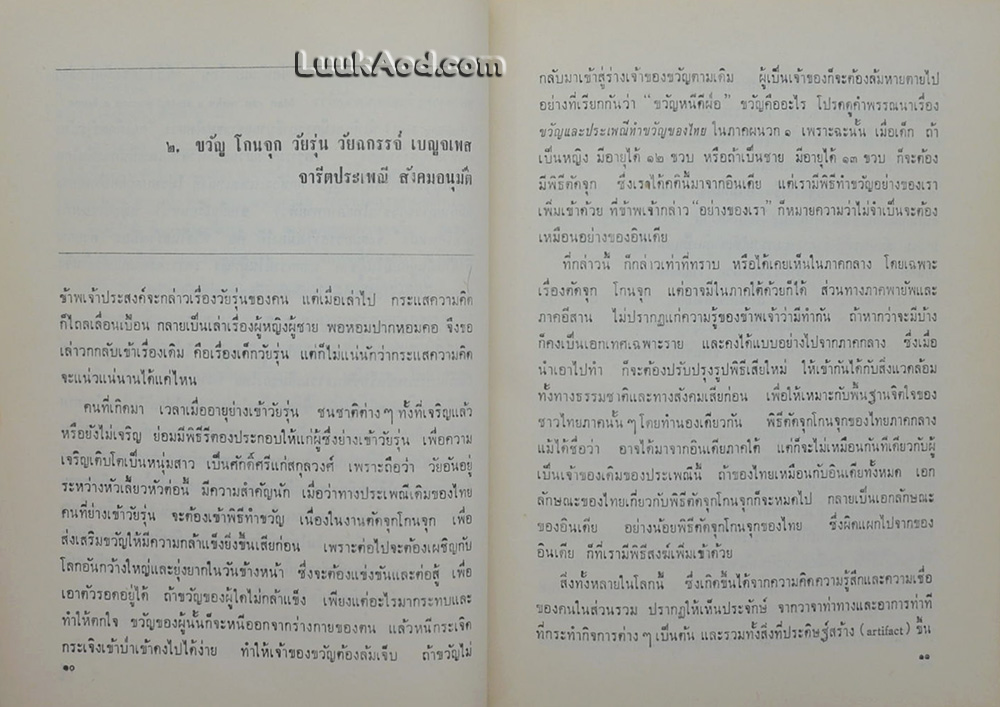 LuukAod.com
๒. ขวัญ โกนจุก วัยรุ่น วัยฉกรรจ์ เบญจเพส
จารีตประเพณี สังคมอนุมัติ
ข้าพเจ้าประสงค์จะกล่าวเรื่องวัยรุ่นของคน แต่เมื่อเล่าไป กระแสความคิด
ก็ไถลเลื่อนเปื้อน กลายเป็นเล่าเรื่องผู้หญิงผู้ชาย พอหอมปากหอมคอ จึงขอ
เล่าวกกลับเข้าเรื่องเดิม คือเรื่องเด็กวัยรุ่น แต่ก็ไม่แน่นักว่ากระแสความคิด
จะแน่วแน่นานได้แค่ไหน
คนที่เกิดมา เวลาเมื่ออายุย่างเข้าวัยรุ่น ชนชาติต่างๆ ทั้งที่เจริญแล้ว
หรือยังไม่เจริญ ย่อมมีพิธีรีตองประกอบให้แก่ผู้ซึ่งย่างเข้าวัยรุ่น เพื่อความ
เจริญเติบโตเป็นหนุ่มสาว เป็นศักดิ์ศรีแก่สกุลวงศ์ เพราะถือว่า วัยอันอยู่
ระหว่างหัวเลี้ยวหัวต่อนี้ มีความสำคัญนัก เมื่อว่าทางประเพณีเดิมของไทย
คนที่ย่างเข้าวัยรุ่น จะต้องเข้าพิธีทำขวัญ เนื่องในงานตัดจุกโกนจุก เพื่อ
ส่งเสริมขวัญให้มีความกล้าแข็งยิ่งขึ้นเสียก่อน เพราะต่อไปจะต้องเผชิญกับ
โลกอันกว้างใหญ่และยุ่งยากในวันข้างหน้า ซึ่งจะต้องแข่งขันและต่อสู้ เพื่อ
เอาตัวรอดอยู่ได้ ถ้าขวัญของผู้ใดไม่กล้าแข็ง เพียงแต่อะไรมากระทบและ
ทำให้ตกใจ ขวัญของผู้นั้นก็จะหนีออกจากร่างกายของตน แล้วหนีกระเจิด
กระเจิงเข้าป่าเข้าดงไปได้ง่าย ทำให้เจ้าของขวัญต้องล้มเจ็บ ถ้าขวัญไม่
๑๐
กลับมาเข้าสู่ร่างเจ้าของขวัญตามเดิม ผู้เป็นเจ้าของก็จะต้องล้มหายตายไป
อย่างที่เรียกกันว่า "ขวัญหนีดีฝ่อ" ขวัญคืออะไร โปรดดูคำพรรณนาเรื่อง
ขวัญและประเพณีทำขวัญของไทย ในภาคผนวก ๑ เพราะฉะนั้น เมื่อเด็ก ถ้า
เป็นหญิง มีอายุได้ ๑๒ ขวบ หรือถ้าเป็นชาย มีอายุได้ ๑๓ ขวบ ก็จะต้อง
มีพิธีตัดจุก ซึ่งเราได้คตินี้มาจากอินเดีย แต่เรามีพิธีทำขวัญอย่างของเรา
เพิ่มเข้าด้วย ที่ข้าพเจ้ากล่าว "อย่างของเรา" ก็หมายความว่าไม่จำเป็นจะต้อง
เหมือนอย่างของอินเดีย
ที่กล่าวนี้ ก็กล่าวเท่าที่ทราบ หรือได้เคยเห็นในภาคกลาง โดยเฉพาะ
เรื่องตัดจุก โกนจุก แต่อาจมีในภาคใต้ด้วยก็ได้ ส่วนทางภาคพายัพและ
ภาคอีสาน ไม่ปรากฏแก่ความรู้ของข้าพเจ้าว่ามีทำกัน ถ้าหากว่าจะมีบ้าง
ก็คงเป็นเอกเทศเฉพาะราย และคงได้แบบอย่างไปจากภาคกลาง ซึ่งเมื่อ
นำเอาไปทำ ก็จะต้องปรับปรุงรูปพิธีเสียใหม่ ให้เข้ากันได้กับสิ่งแวดล้อม
ทั้งทางธรรมชาติและทางสังคมเสียก่อน เพื่อให้เหมาะกับพื้นฐานจิตใจของ
ชาวไทยภาคนั้นๆ โดยทำนองเดียวกัน พิธีตัดจุกโกนจุกของไทยภาคกลาง
แม้ได้ชื่อว่า อาจได้มาจากอินเดียภาคใต้ แต่ก็จะไม่เหมือนกันทีเดียวกับผู้
เป็นเจ้าของเดิมของประเพณีนี้ ถ้าของไทยเหมือนกับอินเดียทั้งหมด เอก
ลักษณะของไทยเกี่ยวกับพิธีตัดจุกโกนจุกก็จะหมดไป กลายเป็นเอกลักษณะ
ของอินเดีย อย่างน้อยพิธีตัดจุกโกนจุกของไทย ซึ่งผิดแผกไปจากของ
อินเดีย ก็ที่เรามีพิธีสงฆ์เพิ่มเข้าด้วย
สิ่งทั้งหลายในโลกนี้ ซึ่งเกิดขึ้นได้จากความคิดความรู้สึกและความเชื่อ
ของคนในส่วนรวม ปรากฏให้เห็นประจักษ์ จากวาจาท่าทางและอาการท่าที
ที่กระทำกิจการต่างๆ เป็นต้น และรวมทั้งสิ่งที่ประดิษฐ์สร้าง (artifact) ขึ้น
๑๑